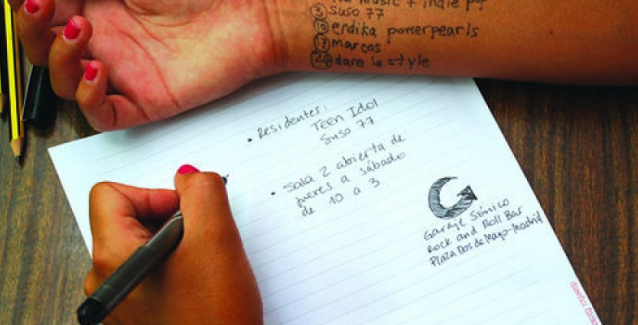 music + indie pop
5 Suso 77
endika powerpearls
marcos
dare to style
• Residentes:
Teen Idol
Suso 77
• Sala 2 abierta de
jueves a sábado
de 10 a 3
Garage Sónico
Rock and Roll Bar
Plaza Dos de Mayo - Madrid